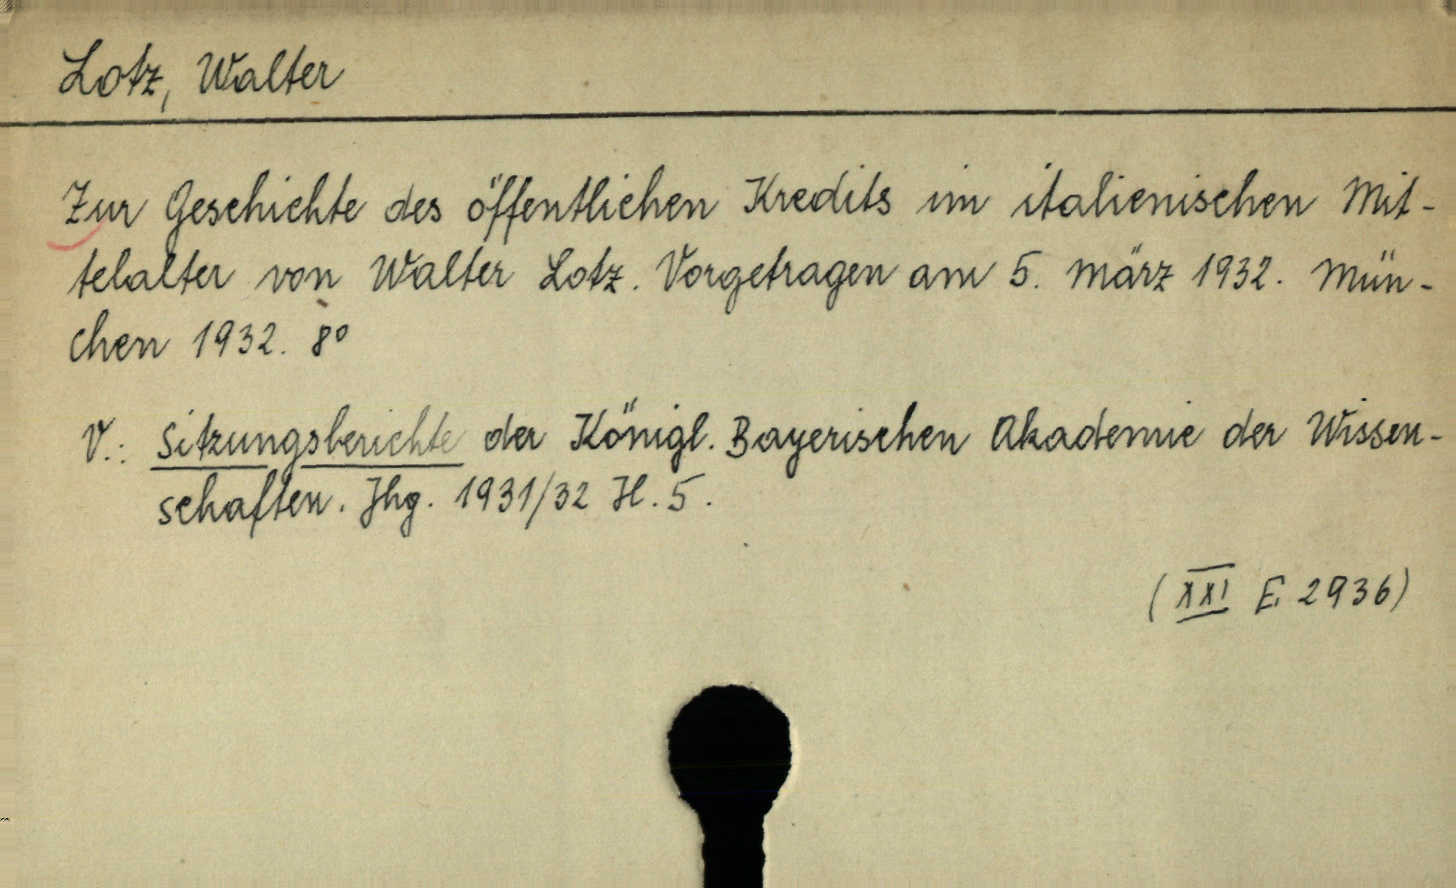 Lotz, Walter
Zur Geschichte des öffentlichen Kredits im italienischen Mit-
telalter von Walter Lotz. Vorgetragen am 5. März 1932. Mün-
chen 1932. 8°
V.: Sitzungsberichte der Königl. Bayerischen Akademie der Wissen-
schaften. Jhg. 1931/32 H. 5.
(XXI E. 2936)